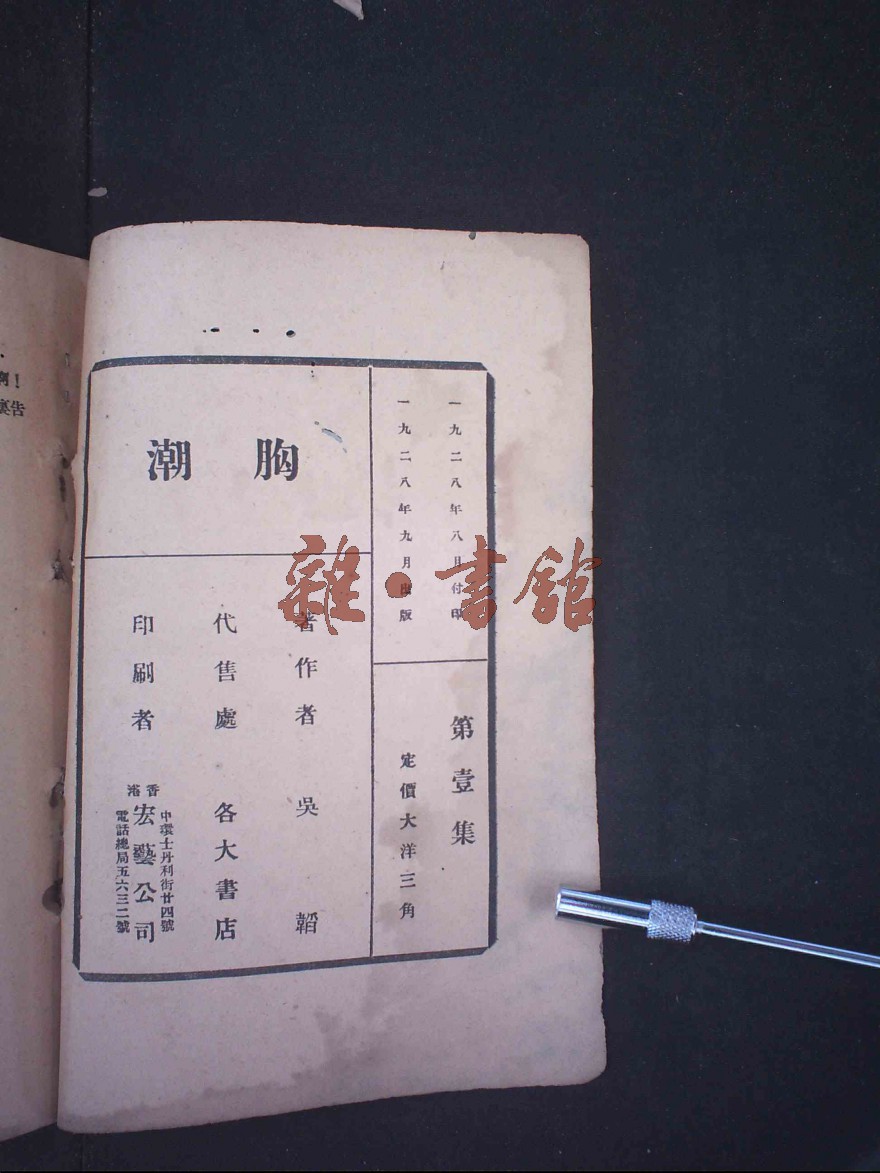 一九二八年八月付印
一九二八年九月出版
第壹集
定價大洋三角
胸潮
著作者 吳韜
代售處 各大書店
印刷者
香港
中環士丹利街廿四號
宏藝公司
電話總局五六三二號
雜·書館
啊！
裏告